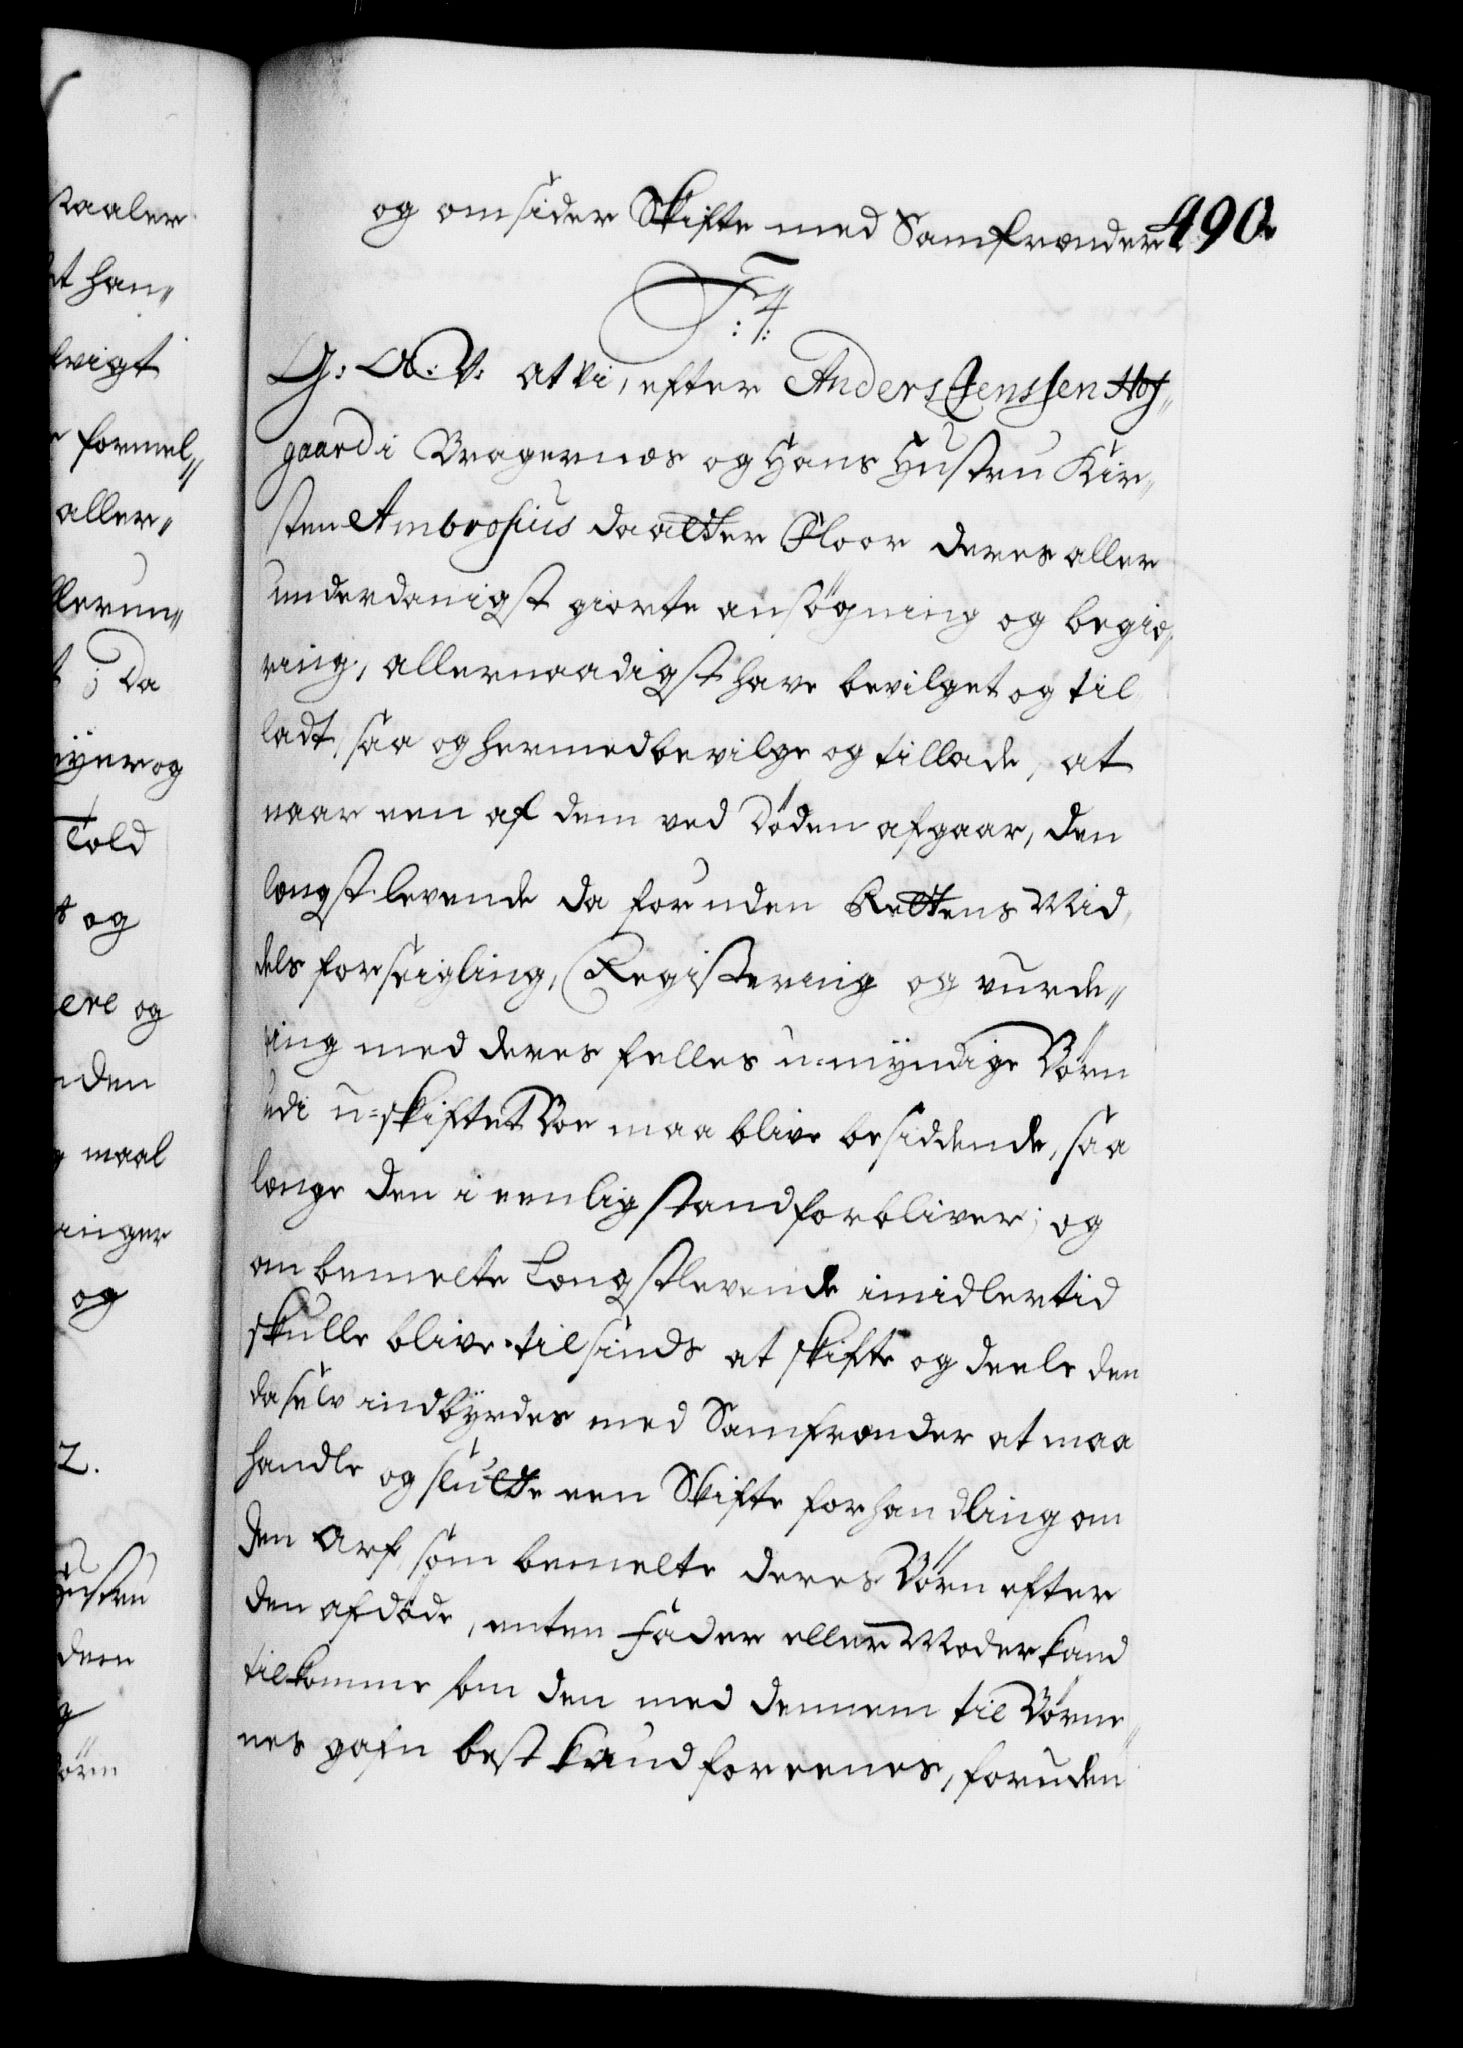 og omsider Skifte med Samfrænder 490.
F. 4
G: A: V: at vi, efter Anders Jenssen Hof„
gaard i Bragernæs og Hans Hustru Kir„
sten Ambrosius daatter Floor deres aller
underdanigst giorte ansøgning og begiæ„
ring, allernaadigst have bevilget og til„
ladt, saa og hermed bevilge og tillade, at
naar een af dem ved døden afgaar, den
længstlevende da foruden Rettens Mid„
dels forseigling, Registering og vurde„
ring med deres felles u-myndige Børn
udi u-skiftet Boe maa blive besiddende, saa
længe den i eenlig stand forbliver; og
om bemelte Længstlevende imidlertid
skulle blive tilsinds at skifte og deele den
da selv indbyrdes med Samfrænder at maa
handle og slutte een Skifte forhandling om
den Arf, som bemelte deres Børn efter
den afdøde, enten Fader eller Moder kand
tilkomme som den med dennem til Børne„
nes gafn best kand foreenes, foruden
staaler
et han„
lvigt
r formel„
aller„
llerun„
t; Da
eyer og
Told
t og
ere og
nden
g maal
inger
og
2.
Hustru
dem
g
Børn